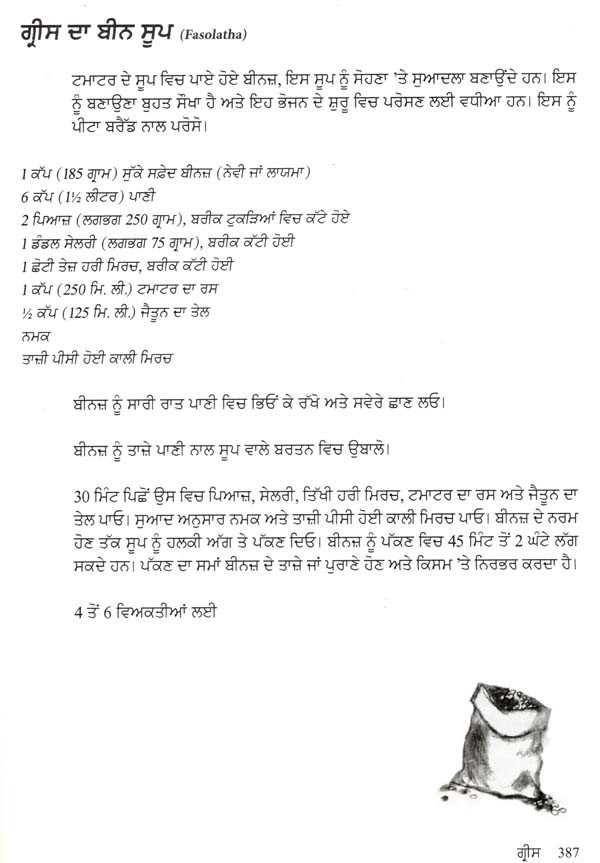 ਗ੍ਰੀਸ ਦਾ ਬੀਨ ਸੂਪ (Fasolatha)
ਟਮਾਟਰ ਦੇ ਸੂਪ ਵਿਚ ਪਾਏ ਹੋਏ ਬੀਨਜ਼, ਇਸ ਸੂਪ ਨੂੰ ਸੋਹਣਾ ’ਤੇ ਸੁਆਦਲਾ ਬਣਾਉਂਦੇ ਹਨ। ਇਸ
ਨੂੰ ਬਣਾਉਣਾ ਬੁਹਤ ਸੌਖਾ ਹੈ ਅਤੇ ਇਹ ਭੋਜਨ ਦੇ ਸ਼ੁਰੂ ਵਿਚ ਪਰੋਸਣ ਲਈ ਵਧੀਆ ਹਨ। ਇਸ ਨੂੰ
ਪੀਟਾ ਬਰੈੱਡ ਨਾਲ ਪਰੋਸੋ।
1 ਕੱਪ (185 ਗ੍ਰਾਮ) ਸੁੱਕੇ ਸਫ਼ੇਦ ਬੀਨਜ਼ (ਨੇਵੀ ਜਾਂ ਲਾਯਮਾ)
6 ਕੱਪ (1½ ਲੀਟਰ) ਪਾਣੀ
2 ਪਿਆਜ਼ (ਲਗਭਗ 250 ਗ੍ਰਾਮ), ਬਰੀਕ ਟੁਕੜਿਆਂ ਵਿਚ ਕੱਟੇ ਹੋਏ
1 ਡੰਡਲ ਸੇਲਰੀ (ਲਗਭਗ 75 ਗ੍ਰਾਮ), ਬਰੀਕ ਕੱਟੀ ਹੋਈ
1 ਛੋਟੀ ਤੇਜ਼ ਹਰੀ ਮਿਰਚ, ਬਰੀਕ ਕੱਟੀ ਹੋਈ
1 ਕੱਪ (250 ਮਿ. ਲੀ.) ਟਮਾਟਰ ਦਾ ਰਸ
½ ਕੱਪ (125 ਮਿ. ਲੀ.) ਜੈਤੂਨ ਦਾ ਤੇਲ
ਨਮਕ
ਤਾਜ਼ੀ ਪੀਸੀ ਹੋਈ ਕਾਲੀ ਮਿਰਚ
ਬੀਨਜ਼ ਨੂੰ ਸਾਰੀ ਰਾਤ ਪਾਣੀ ਵਿਚ ਭਿਓਂ ਕੇ ਰੱਖੋ ਅਤੇ ਸਵੇਰੇ ਛਾਣ ਲਓ।
ਬੀਨਜ਼ ਨੂੰ ਤਾਜ਼ੇ ਪਾਣੀ ਨਾਲ ਸੂਪ ਵਾਲੇ ਬਰਤਨ ਵਿਚ ਉਬਾਲੋ।
30 ਮਿੰਟ ਪਿਛੋਂ ਉਸ ਵਿਚ ਪਿਆਜ਼, ਸੇਲਰੀ, ਤਿੱਖੀ ਹਰੀ ਮਿਰਚ, ਟਮਾਟਰ ਦਾ ਰਸ ਅਤੇ ਜੈਤੂਨ ਦਾ
ਤੇਲ ਪਾਓ। ਸੁਆਦ ਅਨੁਸਾਰ ਨਮਕ ਅਤੇ ਤਾਜ਼ੀ ਪੀਸੀ ਹੋਈ ਕਾਲੀ ਮਿਰਚ ਪਾਓ। ਬੀਨਜ਼ ਦੇ ਨਰਮ
ਹੋਣ ਤੱਕ ਸੂਪ ਨੂੰ ਹਲਕੀ ਅੱਗ ਤੇ ਪੱਕਣ ਦਿਓ। ਬੀਨਜ਼ ਨੂੰ ਪੱਕਣ ਵਿਚ 45 ਮਿੰਟ ਤੋਂ 2 ਘੰਟੇ ਲੱਗ
ਸਕਦੇ ਹਨ। ਪੱਕਣ ਦਾ ਸਮਾਂ ਬੀਨਜ਼ ਦੇ ਤਾਜ਼ੇ ਜਾਂ ਪੁਰਾਣੇ ਹੋਣ ਅਤੇ ਕਿਸਮ ’ਤੇ ਨਿਰਭਰ ਕਰਦਾ ਹੈ।
4 ਤੋਂ 6 ਵਿਅਕਤੀਆਂ ਲਈ
ਗ੍ਰੀਸ 387